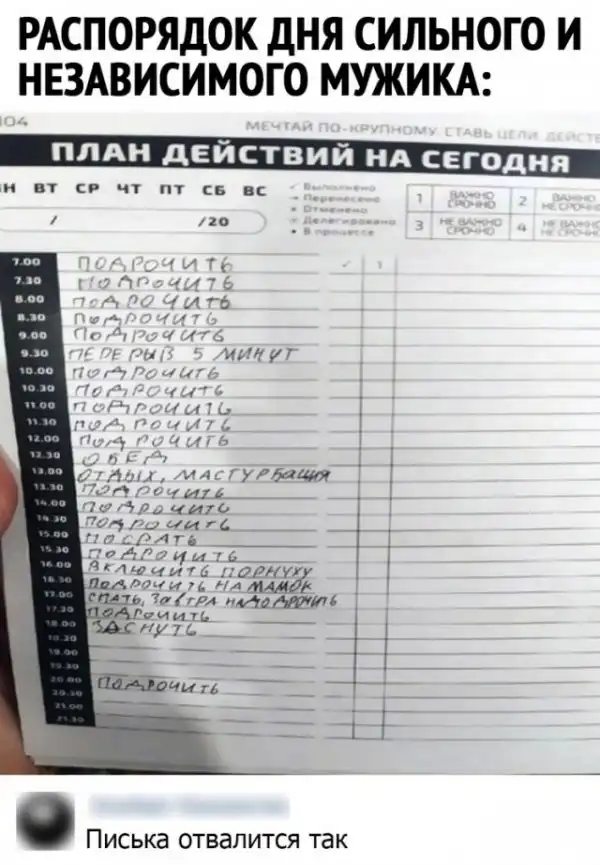 РАСПОРЯДОК ДНЯ СИЛЬНОГО И
НЕЗАВИСИМОГО МУЖИКА:
104
МЕЧТАЙ ПО-КРУПНОМУ. СТАВЬ ЦЕЛИ. ДЕЙСТВ
ПЛАН ДЕЙСТВИЙ НА СЕГОДНЯ
Н ВТ СР ЧТ ПТ СБ ВС
/ /20
✓ Выполнено
→ Перенесено
× Отменено
Делегировано
• В процессе
1 ВАЖНО СРОЧНО 2 ВАЖНО НЕ СРОЧНО
3 НЕ ВАЖНО СРОЧНО 4 НЕ ВАЖНО НЕ СРОЧНО
7.00 ПОДРОЧИТЬ ✓ 1
7.30 ПОДРОЧИТЬ
8.00 ПОДРОЧИТЬ
8.30 ПОДРОЧИТЬ
9.00 ПОДРОЧИТЬ
9.30 ПЕРЕРЫВ 5 МИНУТ
10.00 ПОДРОЧИТЬ
10.30 ПОДРОЧИТЬ
11.00 ПОДРОЧИТЬ
11.30 ПОДРОЧИТЬ
12.00 ПОДРОЧИТЬ
12.30 ОБЕД
13.00 ОТДЫХ, МАСТУРБАЦИЯ
13.30 ПОДРОЧИТЬ
14.00 ПОДРОЧИТЬ
14.30 ПОДРОЧИТЬ
15.00 ПОСРАТЬ
15.30 ПОДРОЧИТЬ
16.00 ВКЛЮЧИТЬ ПОРНУХУ
16.30 ПОДРОЧИТЬ НА МАМОК
17.00 СПАТЬ, ЗАВТРА НАДО ДРОЧИТЬ
17.30 ПОДРОЧИТЬ
18.00 ЗАСНУТЬ
18.30
19.00
19.30
20.00 ПОДРОЧИТЬ
20.30
21.00
21.30
Писька отвалится так